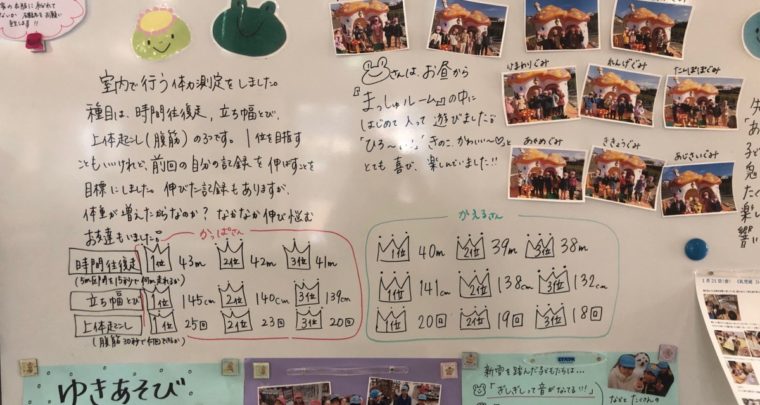 室内で行う体力測定をしました。
種目は、時間往復走，立ち幅とび，
上体起こし(腹筋)の3つです。1位を目指す
こともいいけれど、前回の自分の記録を伸ばすことを
目標にしました。伸びた記録もありますが、
体重が増えたからなのか？なかなか伸び悩む
お友達もいました。
さんは、お昼から
『まっしゅルーム』の中に
はじめて入って遊びました。
「ひろ～いな」きのこ、かわいい～♡と
とても喜び、楽しんでいました!!
ひまわりぐみ
れんげぐみ
たんぽぽぐみ
あやめぐみ
ききょうぐみ
あじさいぐみ
かっぱさん
時間往復走 1位 43m 2位 42m 3位 41m
立ち幅とび 1位 145cm 2位 140cm 3位 139cm
上体起こし 1位 25回 2位 23回 3位 20回
(腹筋30秒で何回できるか)
かえるさん
1位 40m 2位 39m 3位 38m
1位 141cm 2位 138cm 3位 132cm
1位 20回 2位 19回 3位 18回
ゆきあそび
新雪を踏んだ子どもたちは…
「ぎしぎしって音がなってる!!」